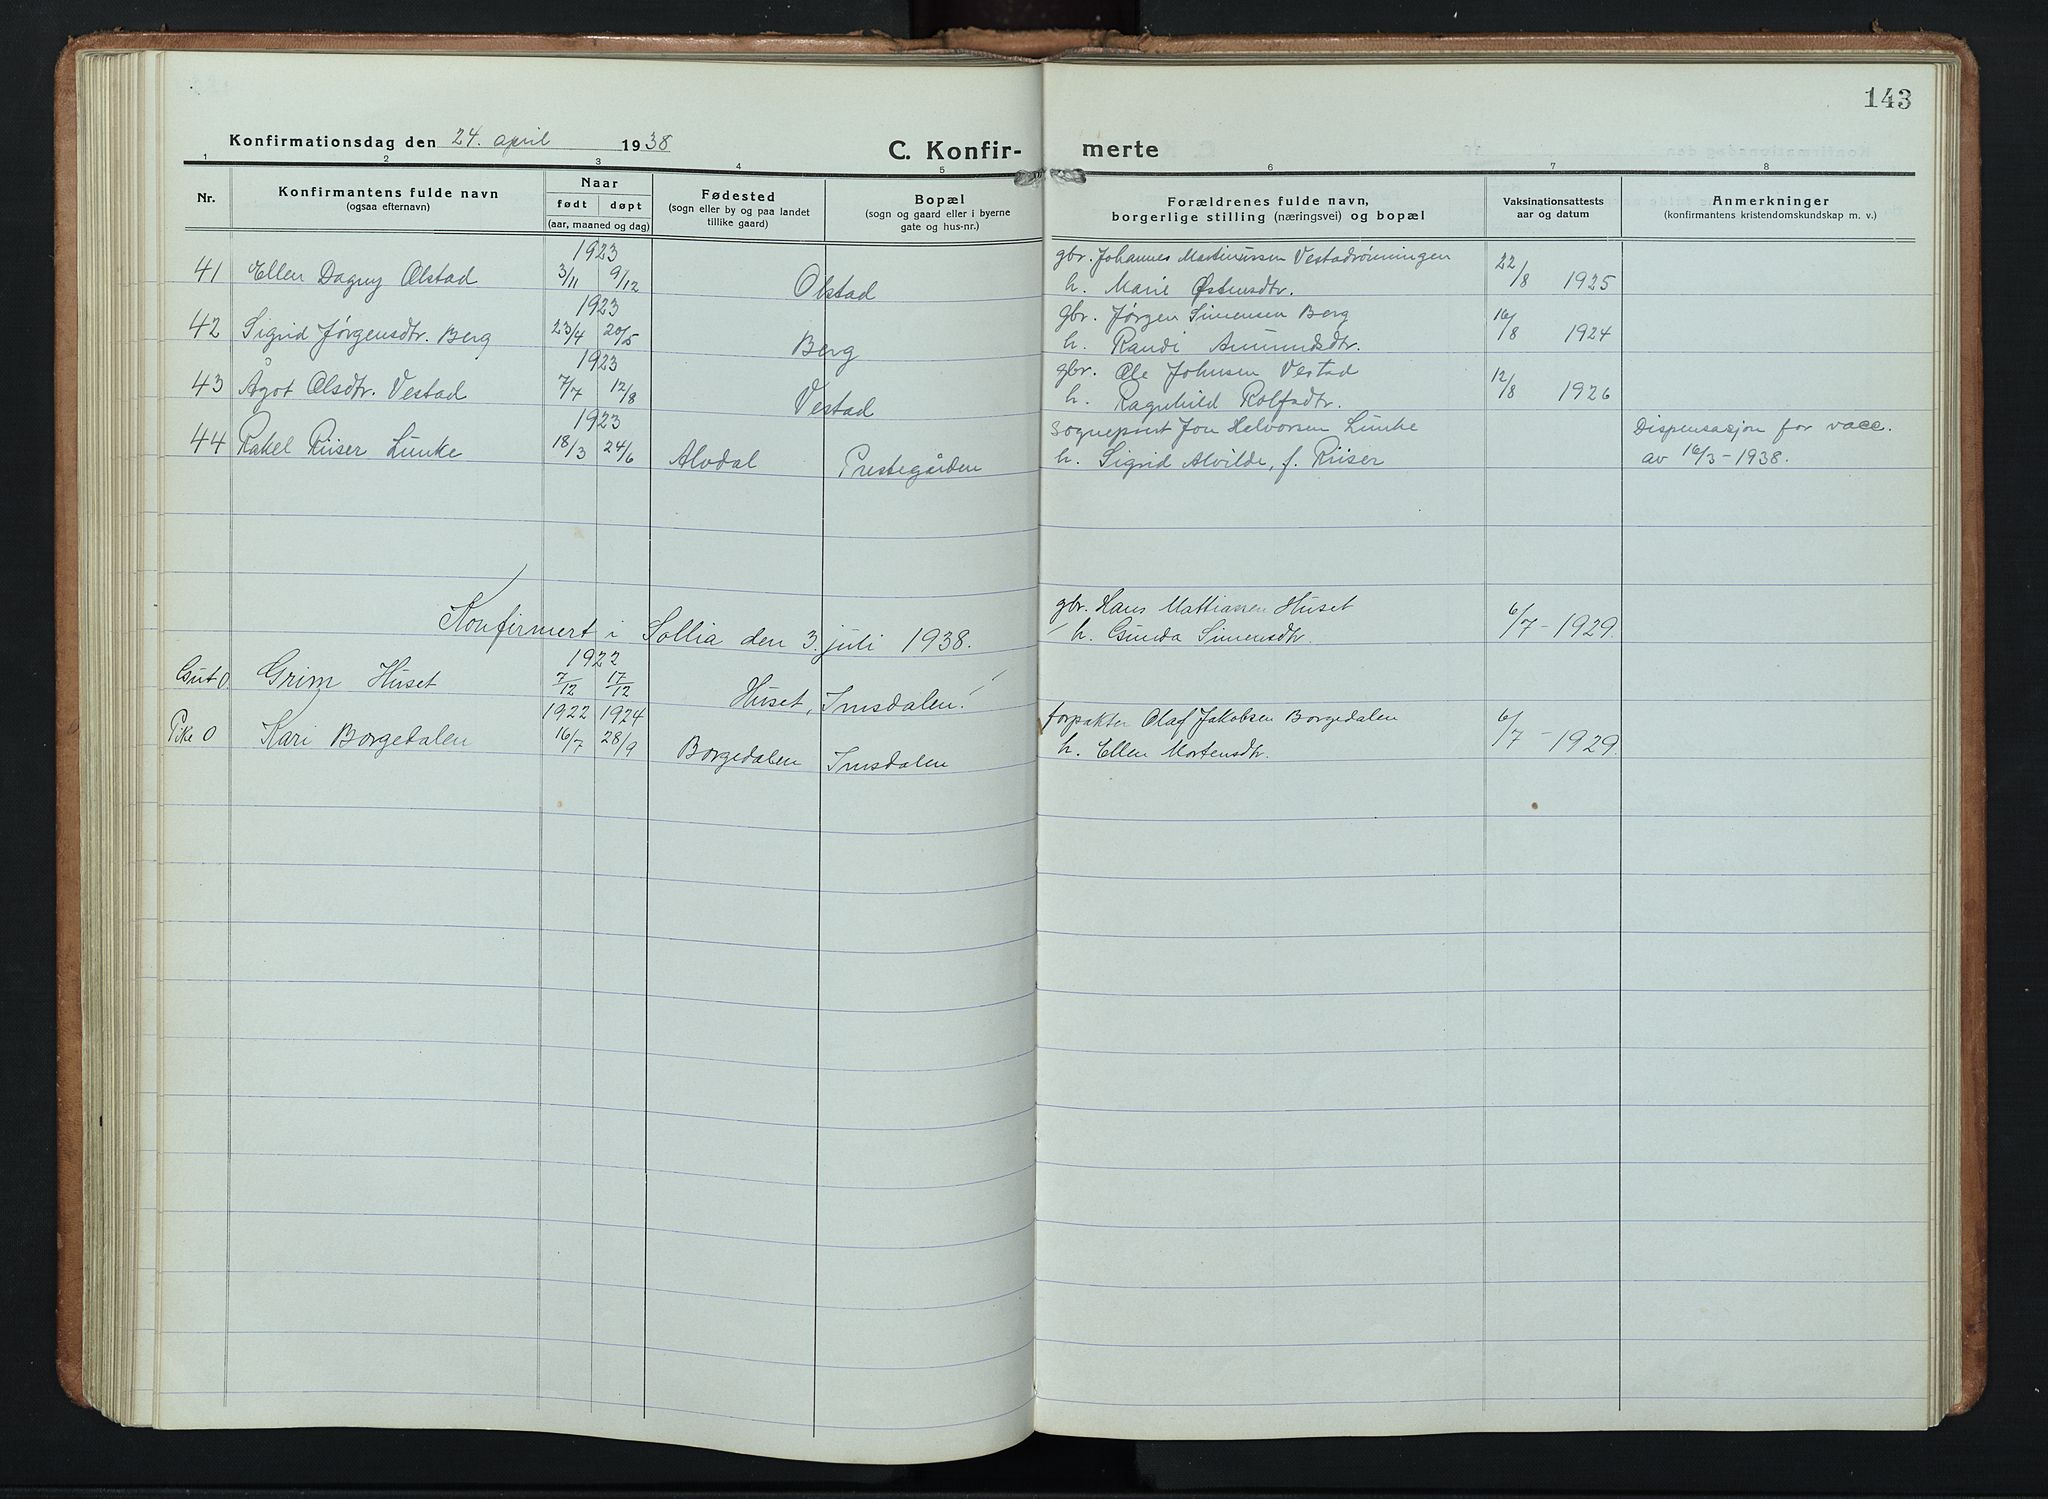 143
Konfirmationsdag den 24. april 1938
C. Konfir- merte
1 2 3 4 5 6 7 8
Nr.
Konfirmantens fulde navn
(ogsaa efternavn)
Naar
født døpt
(aar, maaned og dag)
Fødested
(sogn eller by og paa landet
tillike gaard)
Bopæl
(sogn og gaard eller i byerne
gate og hus-nr.)
Forældrenes fulde navn,
borgerlige stilling (næringsvei) og bopæl
Vaksinationsattests
aar og datum
Anmerkninger
(konfirmantens kristendomskundskap m. v.)
1923 gbr. Johannes Martinussen Vestadrønningen
41 Ellen Dagny Olstad 3/11 9/12 Olstad h. Marie Østensdtr. 22/8 1925
1923 gbr. Jørgen Simensen Berg
42 Sigrid Jørgensdtr. Berg 23/4 20/5 Berg h. Randi Amundsdtr. 16/8 1924
1923 gbr. Ole Johnsen Vestad
43 Ågot Olsdtr. Vestad 7/7 12/8 Vestad h. Ragnhild Rolfsdtr. 12/8 1926
1923 Sogneprest Jon Helvorsen Lunke Dispensasjon for vacc.
44 Rakel Riiser Lunke 18/3 24/6 Alvdal Prestegården h. Sigrid Alvilde, f. Riiser av 16/3-1938.
gbr. Hans Mattiassen Huset
Konfirmert i Sollia den 3. juli 1938. h. Gunda Simensdtr. 6/7-1929.
1922
Gut 0. Grim Huset 7/12 17/12 Huset, Imsdalen!
1922 1924 forpakter Olaf Jakobsen Borgedalen
Pike 0 Kari Borgedalen 16/7 28/9 Borgedalen Imsdalen h. Ellen Mortensdtr. 6/7-1929.